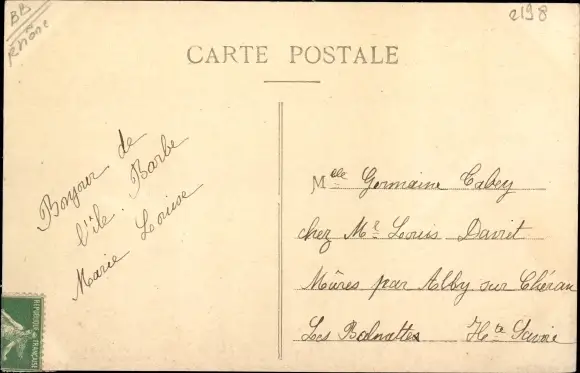 BB
Rhône
2198
CARTE POSTALE
Bonjour de
l'île Barbe
Marie Louise
Melle Germaine Cabey
chez Mr Louis Daviet
Mûres par Alby sur Chéran
Les Balmettes Hte Savoie
REPUBLIQUE FRANÇAISE